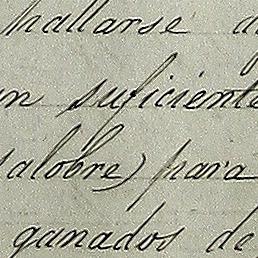 hallarse
un suficiente
salobre) para
ganados de